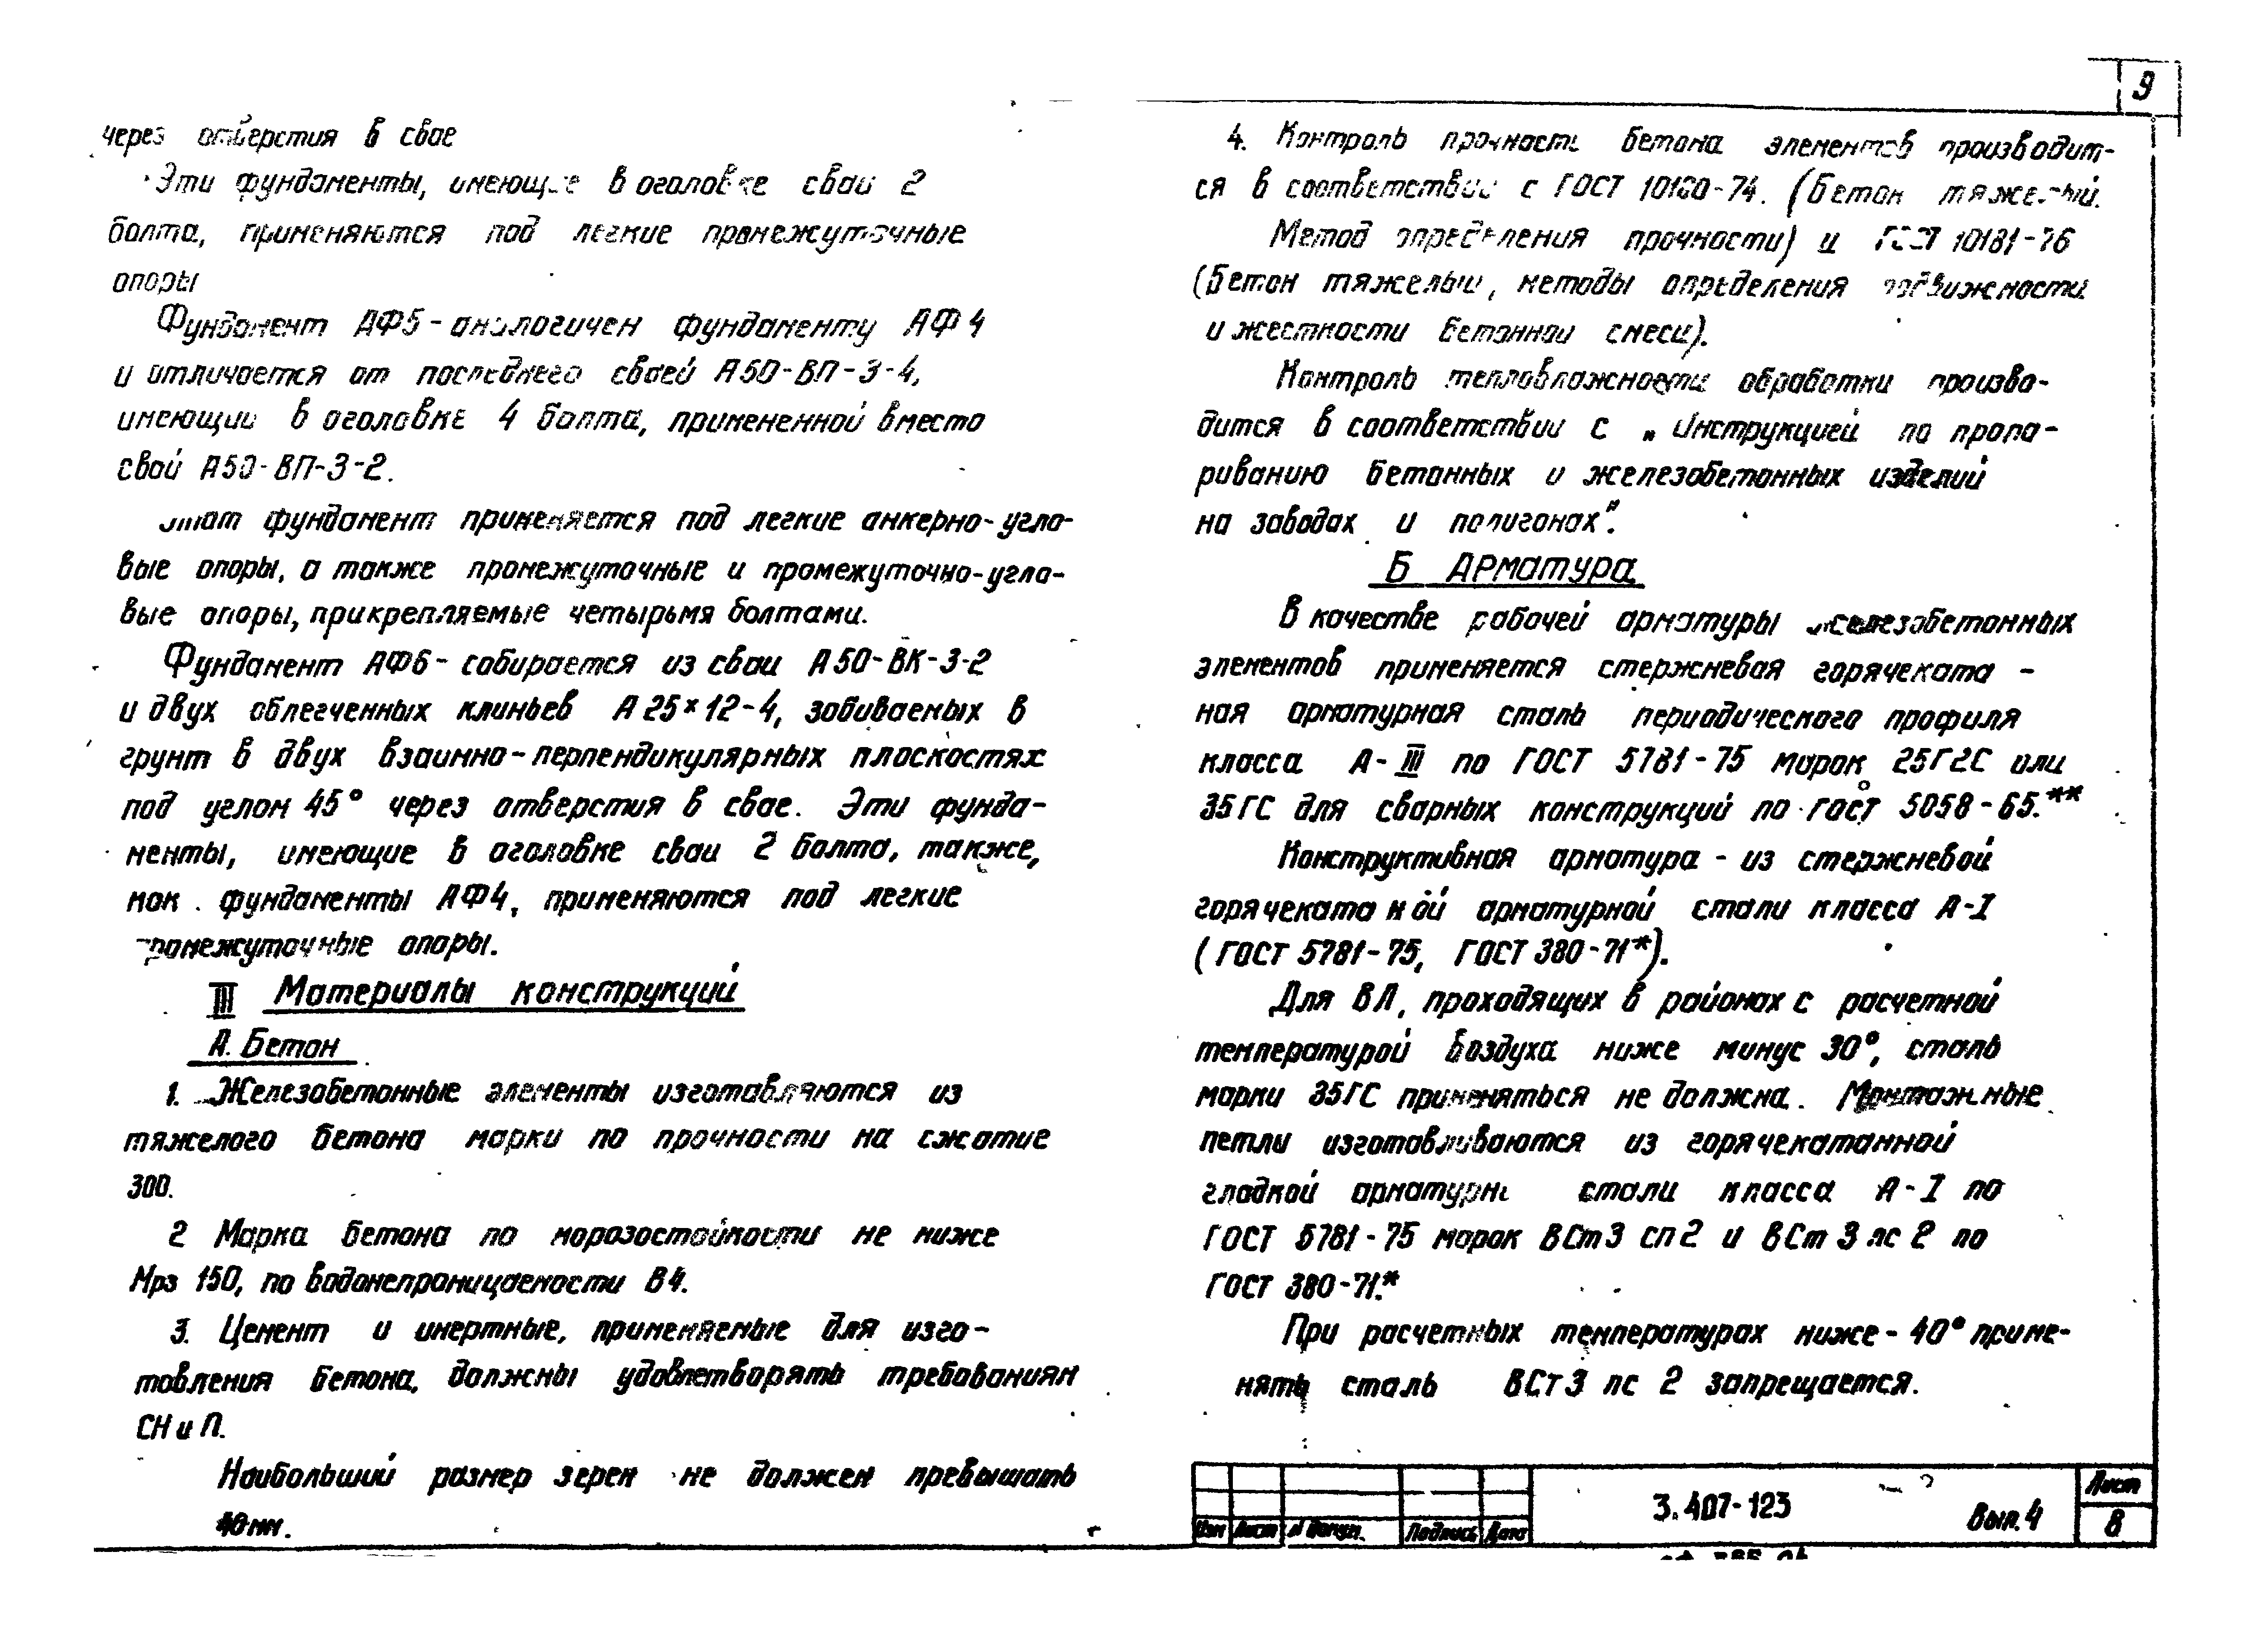 9
через отверстия в свае
Эти фундаменты, имеющие в оголовке сваи 2
болта, применяются под легкие промежуточные
опоры
Фундамент АФ5 - аналогичен фундаменту АФ4
и отличается от последнего сваей А50-ВП-3-4,
имеющий в оголовке 4 болта, примененной вместо
свай А50-ВП-3-2.
Этот фундамент применяется под легкие анкерно-угло-
вые опоры, а также промежуточные и промежуточно-угло-
вые опоры, прикрепляемые четырьмя болтами.
Фундамент АФ6 - собирается из сваи А50-ВК-3-2
и двух облегченных клиньев А25×12-4, забиваемых в
грунт в двух взаимно-перпендикулярных плоскостях
под углом 45° через отверстия в свае. Эти фунда-
менты, имеющие в оголовке сваи 2 болта, также,
как фундаменты АФ4, применяются под легкие
промежуточные опоры.
III Материалы конструкций
А. Бетон
1. Железобетонные элементы изготавляются из
тяжелого бетона марки по прочности на сжатие
300.
2 Марка бетона по морозостойкости не ниже
Мрз 150, по водонепроницаемости В4.
3. Цемент и инертные, применяемые для изго-
товления бетона, должны удовлетворять требованиям
СН и П.
Наибольший размер зерен не должен превышать
40 мм.
4. Контроль прочности бетона элементов производит-
ся в соответствии с ГОСТ 10180-74. (Бетон тяжелый.
Метод определения прочности) и ГОСТ 10181-76
(Бетон тяжелый, методы определения подвижности
и жесткости бетонной смеси).
Контроль тепловлажности обработки произво-
дится в соответствии с „Инструкцией по пропа-
риванию бетонных и железобетонных изделий
на заводах и полигонах".
Б Арматура
В качестве рабочей арматуры железобетонных
элементов применяется стержневая горячеката -
ная арматурная сталь периодического профиля
класса А-III по ГОСТ 5781-75 марок 25Г2С или
35ГС для сварных конструкций по ГОСТ 5058-65.**
Конструктивная арматура - из стержневой
горячекатаной арматурной стали класса А-I
(ГОСТ 5781-75, ГОСТ 380-71*).
Для ВЛ, проходящих в районах с расчетной
температурой воздуха ниже минус 30°, сталь
марки 35ГС применяться не должна. Монтажные
петли изготавливаются из горячекатанной
гладкой арматурн стали класса А-I по
ГОСТ 5781-75 марок ВСт3 сп2 и ВСт 3 пс 2 по
ГОСТ 380-71.*
При расчетных температурах ниже -40° приме-
нять сталь ВСт3 пс 2 запрещается.
Изм Лист № докум. Подпись Дата
3.407-123 Вып. 4
Лист
8